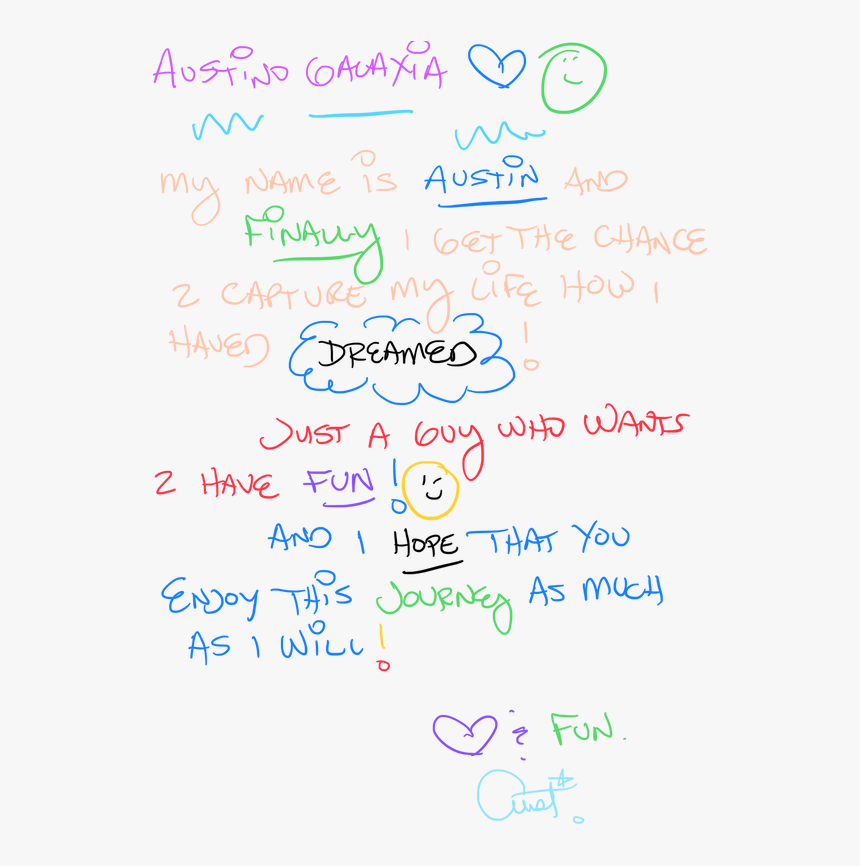 AUSTINO GALAXIA
MY NAME IS AUSTIN AND
FINALLY I GET THE CHANCE
2 CAPTURE MY LIFE HOW I
HAVED DREAMED!
JUST A GUY WHO WANTS
2 HAVE FUN!
AND I HOPE THAT YOU
ENJOY THIS JOURNEY AS MUCH
AS I WILL!
& FUN.